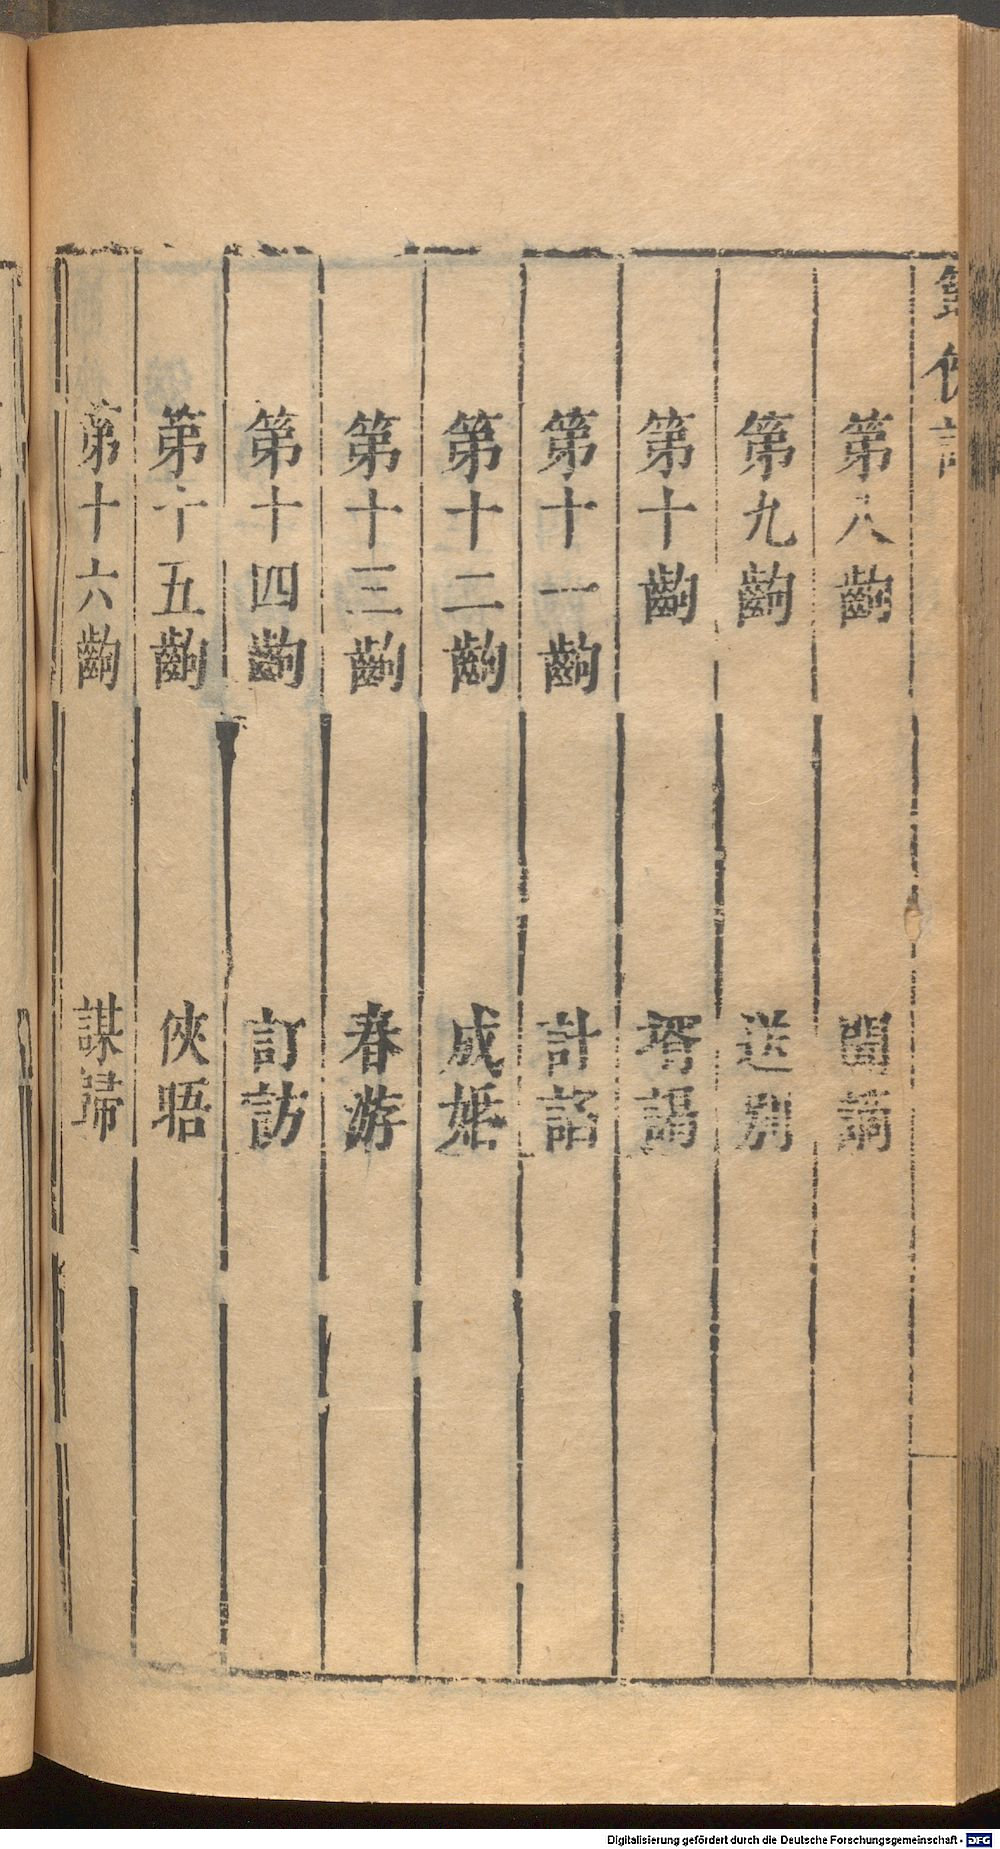 第八齣 謫
第九齣 送別
第十齣 壻
第十一齣 計諂
第十二齣 成婚
第十三齣 春游
第十四齣 訂訪
第十五齣 俠晤
第十六齣 謀歸
Digitalisierung gefördert durch die Deutsche Forschungsgemeinschaft - DFG